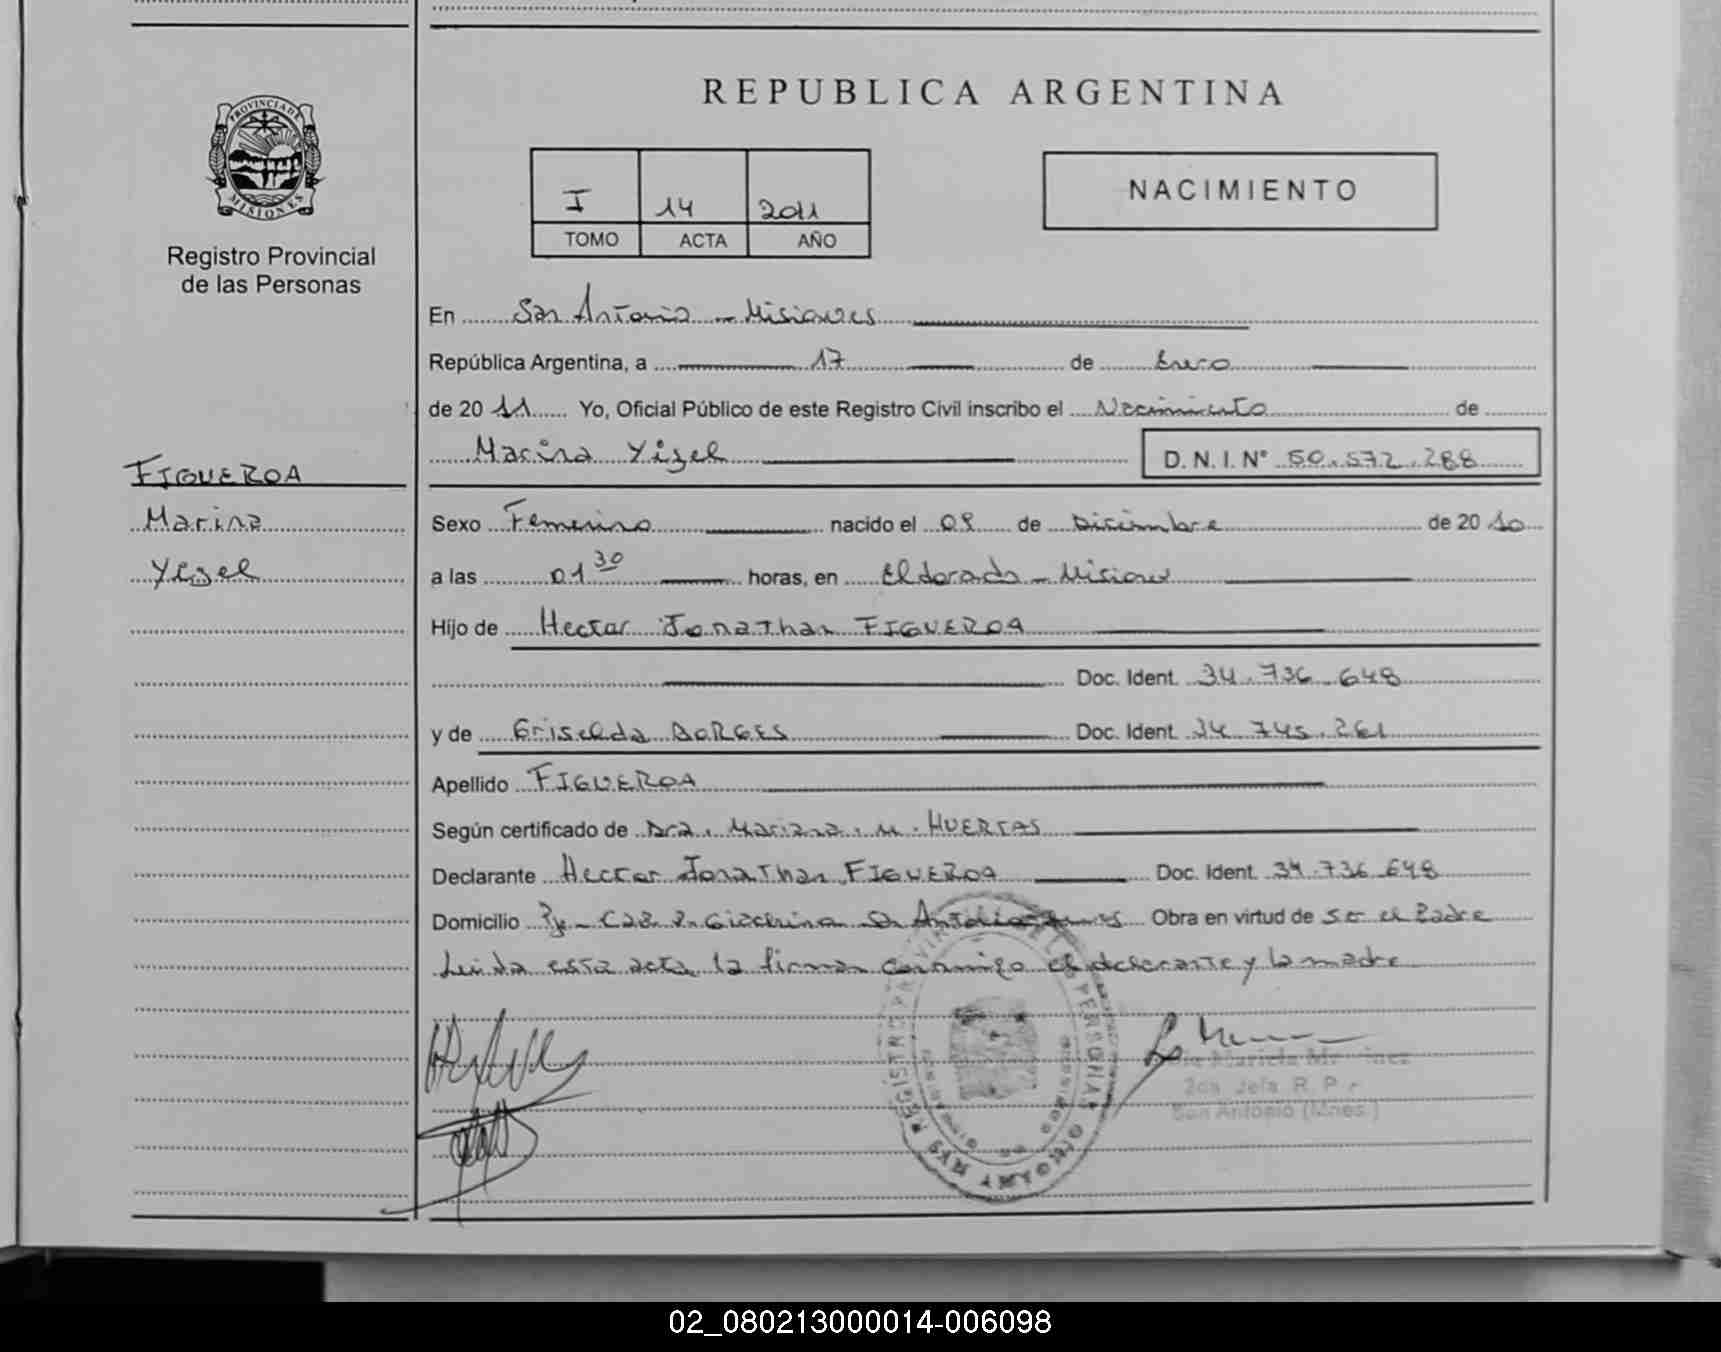 REPUBLICA ARGENTINA
PROVINCIA DE
MISIONES
Registro Provincial
de las Personas
I 14 2011
TOMO ACTA AÑO
NACIMIENTO
En San Antonio - Misiones
República Argentina, a 17 de Enero
de 2011 Yo, Oficial Público de este Registro Civil inscribo el Nacimiento de
Marina Yizel D. N. I. N° 50.572.288
FIGUEROA
Marina
Yizel
Sexo Femenino nacido el 09 de Diciembre de 2010
a las 01 30 horas, en Eldorado - Misiones
Hijo de Hector Jonathan FIGUEROA
Doc. Ident. 34.736.648
y de Griselda BORGES Doc. Ident. 34.745.261
Apellido FIGUEROA
Según certificado de Dra. Mariana. M. HUERTAS
Declarante Hector Jonathan FIGUEROA Doc. Ident. 34.736.648
Domicilio Obra en virtud de ser el Padre
Leida esta acta la firman conmigo el declarante y la madre
2da Jefa R. P.
San Antonio (Mnes.)
02_080213000014-006098